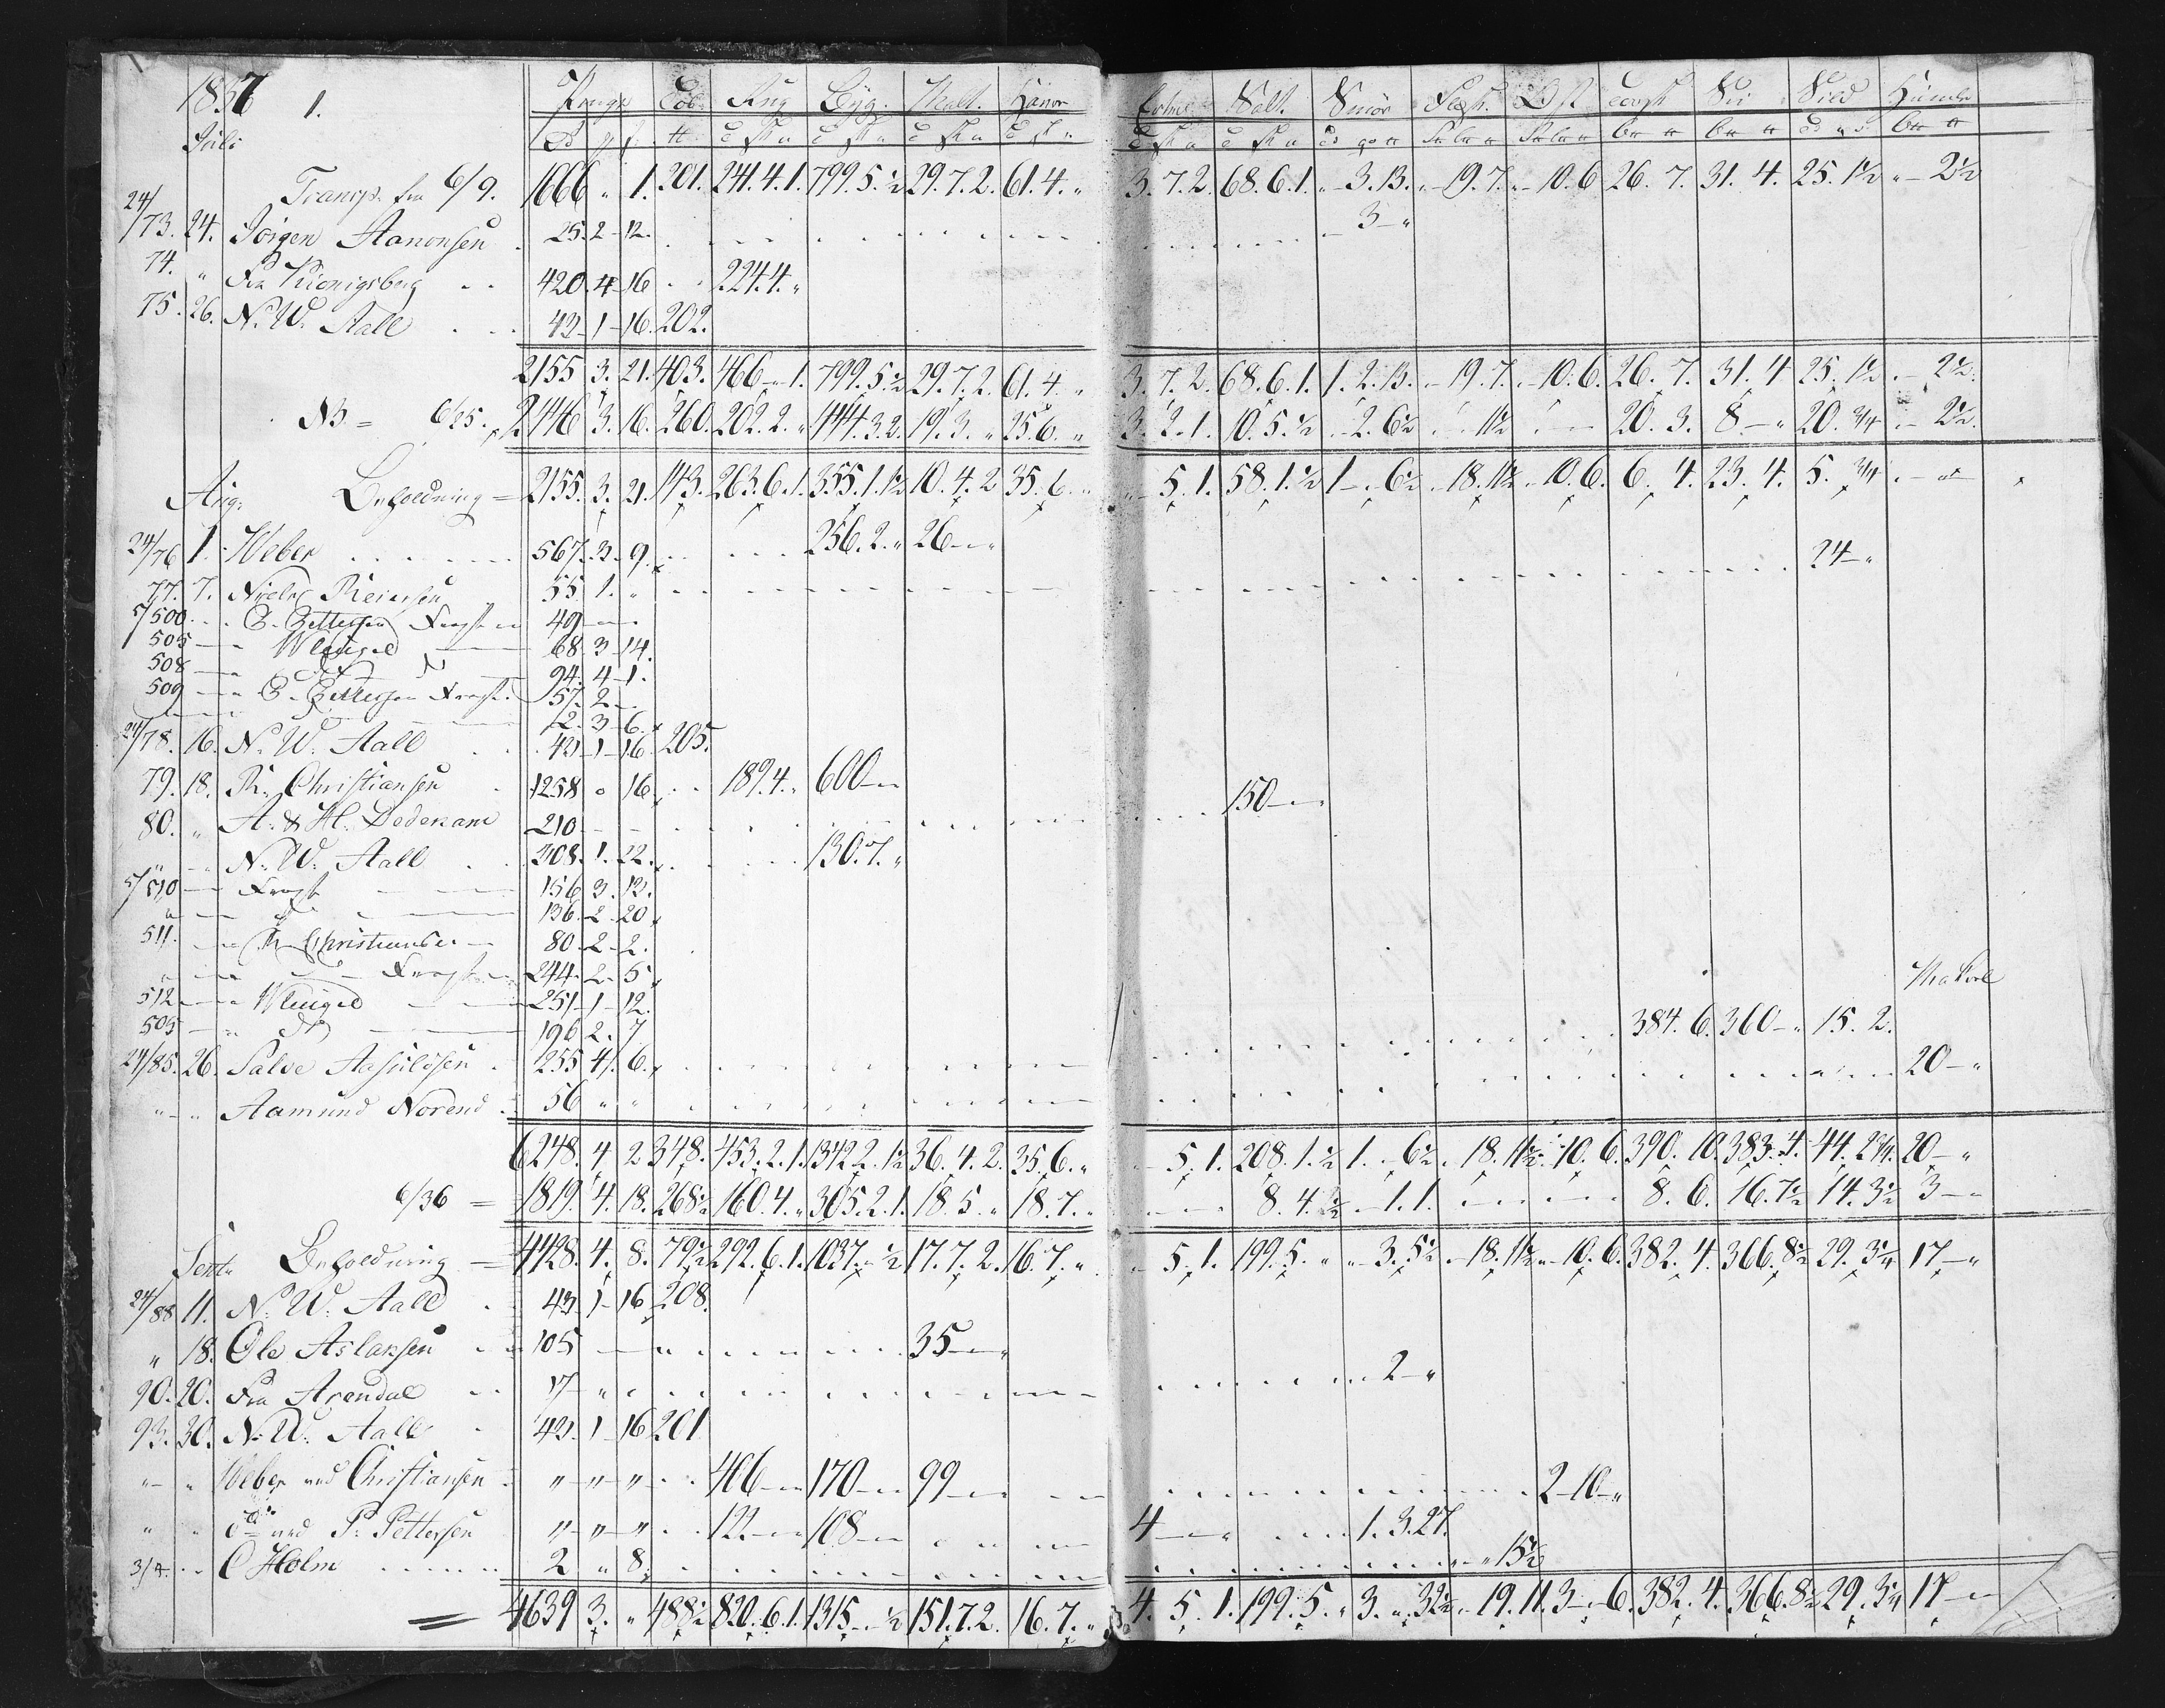 1857 1. Penge Tob. Rug Byg. Malt. Havre Erter Salt. Smør Flesk. Ost Torsk Sei Sild Humle
Juli
Transp. fra 6/9. 1666 " 1. 201. 241.4.1. 799.5.½ 29.7.2. 61.4. " 3.7.2. 68.6.1. " 3.13. " 19.7. " 10.6 26. 7. 31. 4. 25. 1½ " 2½
24/73. 24. Jörgen Aanonsen 25. 2 12. 3 "
74. " Fra Kionigsberg 420. 4 16 224.4. "
75. 26. N. W. Aall 43 1 16. 202.
2155 3. 21. 403. 466 " 1. 799.5.½ 29.7.2. 61.4. " 3.7.2. 68.6.1. 1.2.13. 19.7. 10.6. 26. 7. 31. 4 25. 1½ 2½.
NB = 6/25. 2446 3. 16. 260. 202.2. " 444.3.2. 19.3. " 25.6. " 3.2.1. 10.5.½ 2.6½ 11½ 20. 3. 8 " 20. 3/4 2½.
Aug. Beholdning = 2155. 3. 21. 143. 263.6.1. 355.1.1½ 10.4.2 35.6. " 5.1. 58.1.½ 1 6½ 18.11½ 10.6. 6. 4. 23. 4. 5. 3/4
24/76 1. Weber 567. 3. 9. 256.2. " 26 " 24 "
77. 7. Niels Reiersen 55 1. "
5/500 E. Zettersen Fragt 49
505 W Luigel 68 3 14.
508 do 94. 4 1.
509 E. Zettersen Fragt 57. 2
12. 3 6.
24/78. 16. N. W. Aall 43 1 16 205.
79. 18. R. Christiansen 1258 o 16 189.4. " 600 150
80. " A. & H. Dedekam 210
" N. W. Aall 308. 1. 22. 130.7. "
5/510 Fragt 156 3. 12.
" 136. 2 20
511. R Christiansen 80 2 2.
" Fragt 244 2 5
512 W Luigel 251 1 12. Makrel
505 do 196 2. 7 384. 6. 360 " 15. 2.
24/85. 26. Salve Aasuldsen 1255 4 6. 20 "
" " Aamund Norend 56 " "
6248. 4 2 348. 453.2.1. 1342.2.1½ 36.4.2. 35.6. " 5.1. 208.1.½ 1. 6½ 18.11½ 10.6. 390. 10. 383. 4. 44. 23/4. 20 "
6/36 = 1819. 4. 18. 268½ 160.4. " 305.2.1. 18.5. " 18.7. " 8.4.½ 1.1. 8. 6. 16.7½ 14. 3½ 3
Septr Beholdning = 4428. 4. 8. 79½ 292.6.1. 1037 ½ 17.7.2. 16.7. " 5.1. 199.5. " 3.5½ 18.11½ 10.6. 382. 4. 366.8½ 29. 3¼ 17 "
24/88 11. N. W. Aall 43 1 16 208.
" 18. Ole Aslaksen 105 35 "
90. 20. Fra Arendal 17 " 2 "
93. 30. N. W. Aall 43. 1 16 201
" " Weber ved Christiansen " " " 406 170 99 2 10 "
" " do ved P. Pettersen " " " 122 108 4 1.3.27.
3/4. O Holm 2 " 8. 15½
4639 3. " 488½ 820.6.1. 1315 ½ 151.7.2. 16.7. " 4.5.1. 199.5. " 3. " 32½ 19.11. 3 6. 382. 4. 366.8½ 29. 3¼ 17